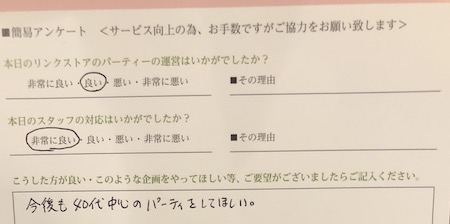 ■簡易アンケート <サービス向上の為、お手数ですがご協力をお願い致します>
本日のリンクストアのパーティーの運営はいかがでしたか？
非常に良い・良い・悪い・非常に悪い ■その理由
本日のスタッフの対応はいかがでしたか？
非常に良い・良い・悪い・非常に悪い ■その理由
こうした方が良い・このような企画をやってほしい等、ご要望がございましたらご記入ください。
今後も40代中心のパーティをしてほしい。